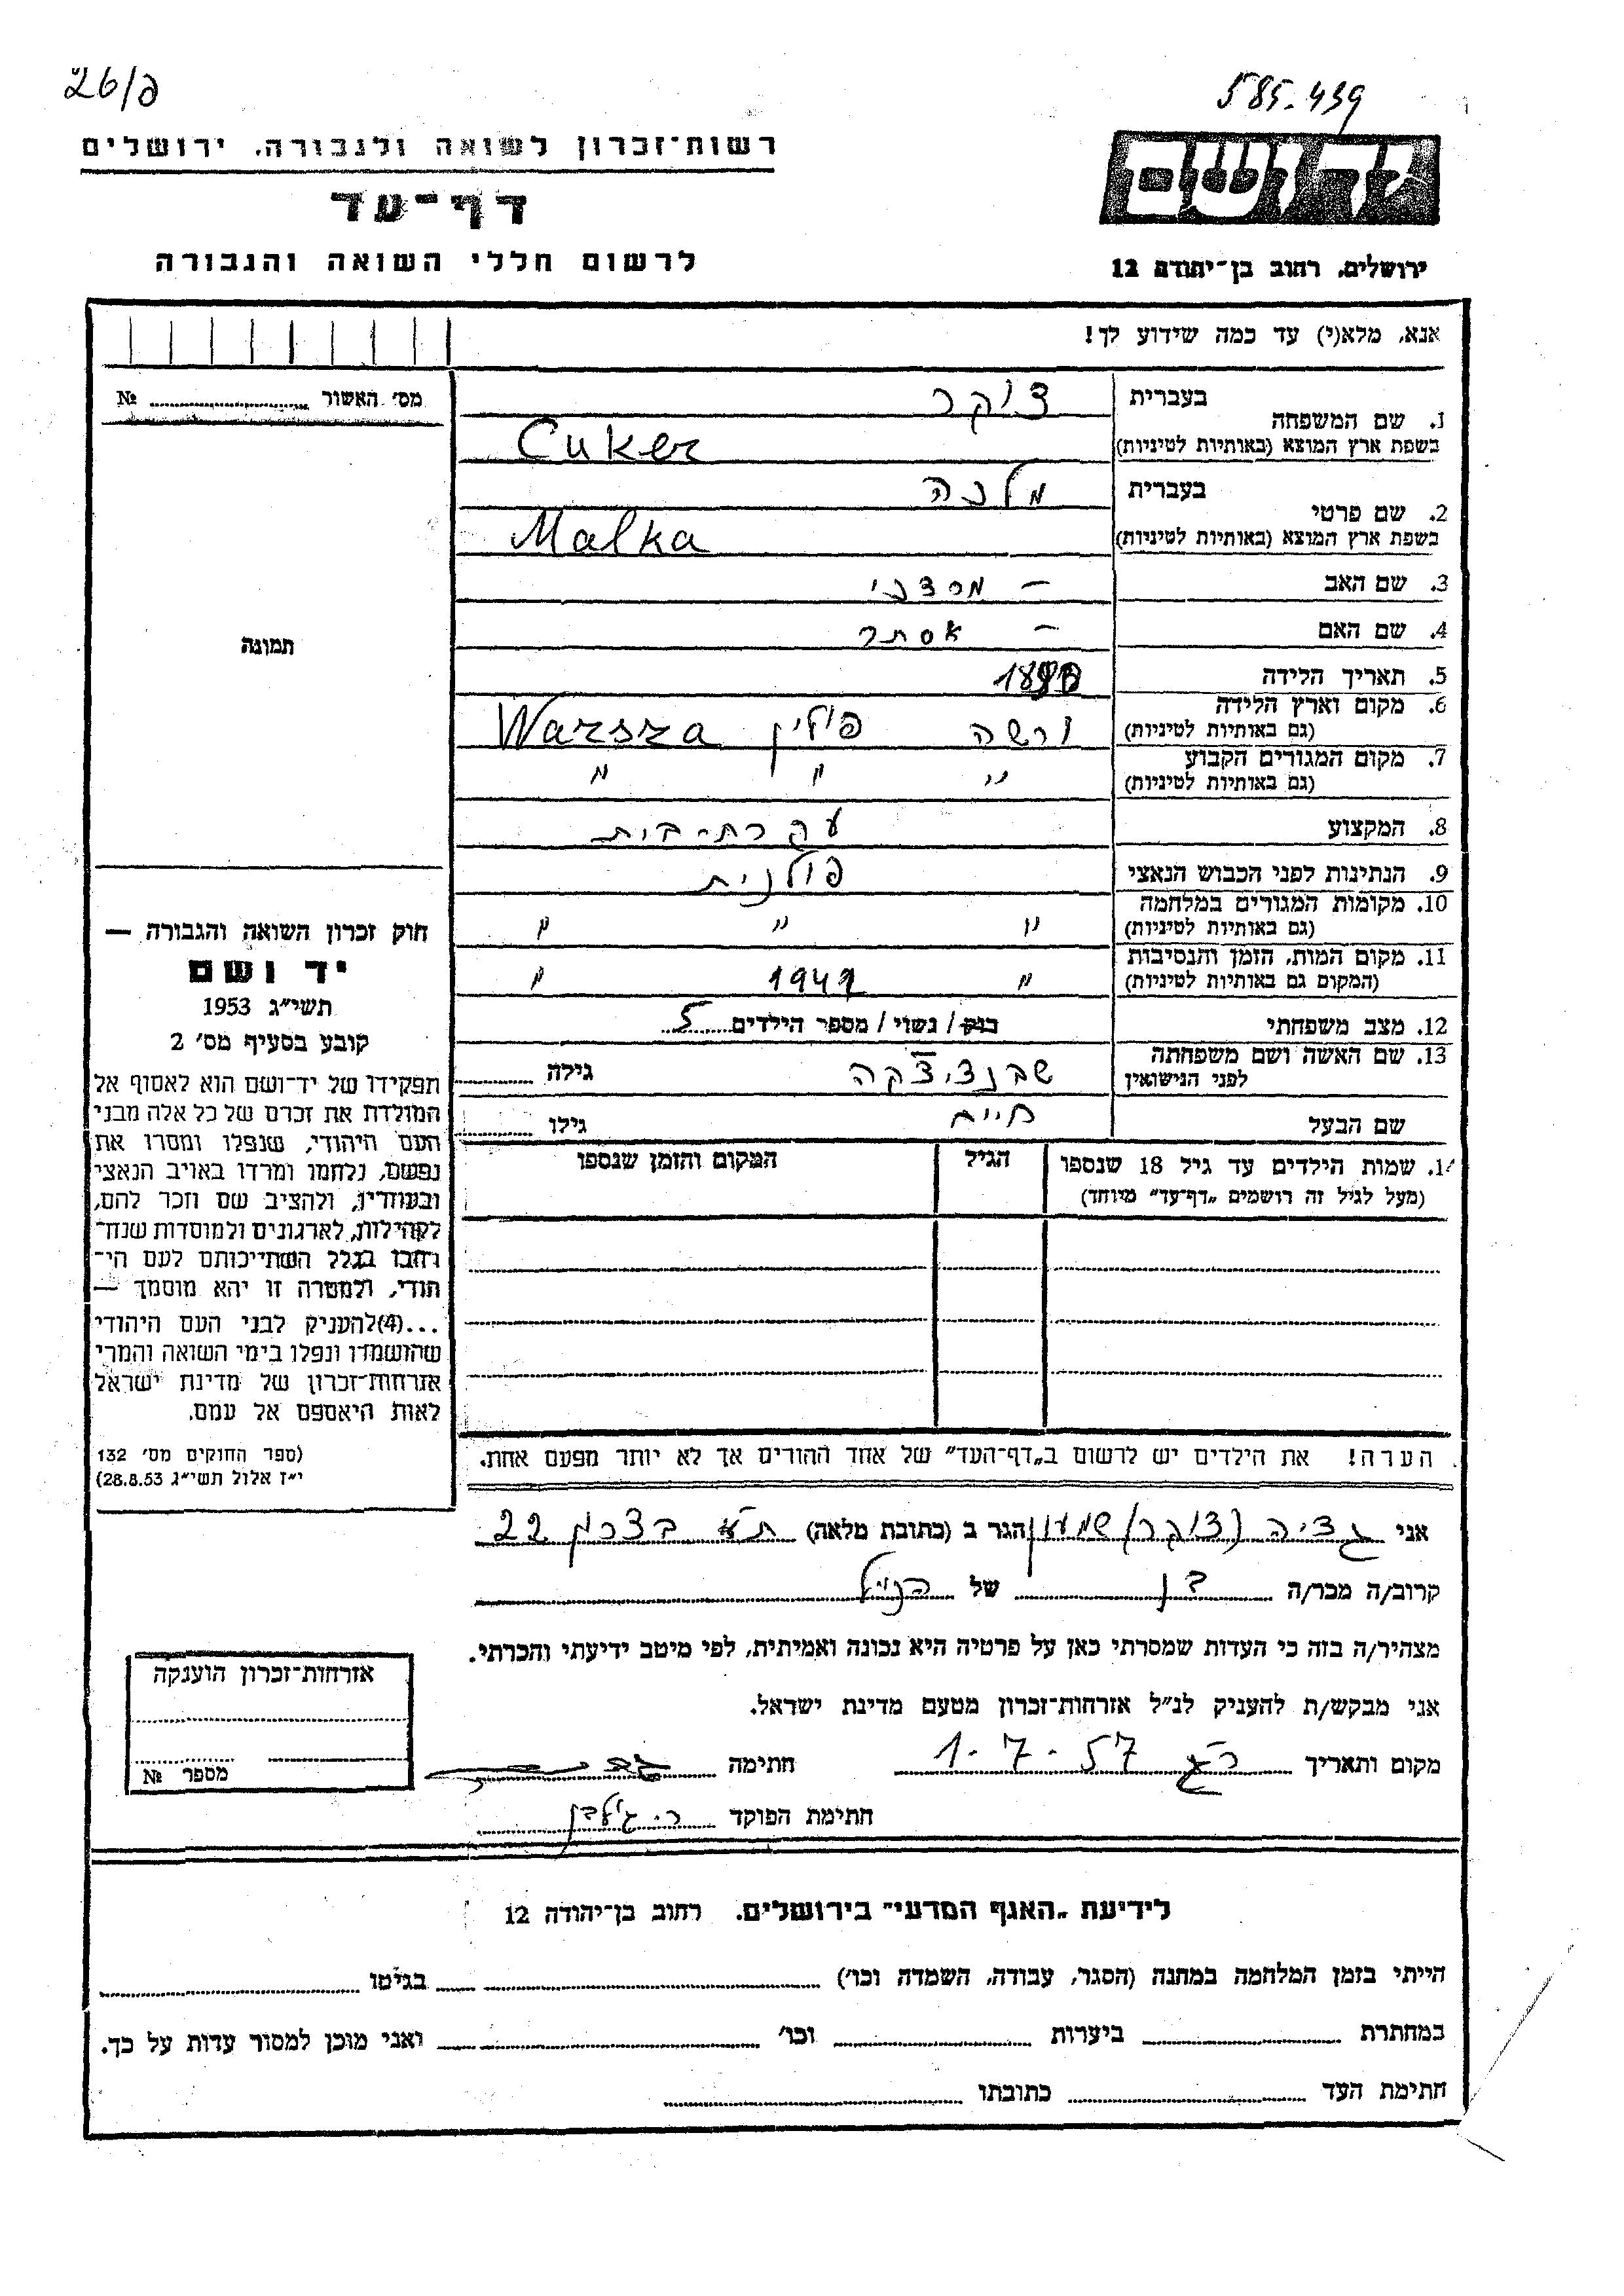 26/פ
585.439
רשות־זכרון לשואה ולגבורה, ירושלים
יד ושם
דף־עד
לרשום חללי השואה והגבורה
ירושלים, רחוב בן־יהודה 12
אנא, מלא(י) עד כמה שידוע לך!
מס׳ האשור № 
1. שם המשפחה בעברית צוקר
בשפת ארץ המוצא (באותיות לטיניות) Cuker
2. שם פרטי בעברית מלכה
בשפת ארץ המוצא (באותיות לטיניות) Malka
3. שם האב – מרדכי
4. שם האם – אסתר
5. תאריך הלידה
6. מקום וארץ הלידה (גם באותיות לטיניות) ורשה פולין Warsza
7. מקום המגורים הקבוע (גם באותיות לטיניות) " " "
8. המקצוע עקרת-בית
9. הנתינות לפני הכבוש הנאצי פולנית
10. מקומות המגורים במלחמה (גם באותיות לטיניות) " " "
11. מקום המות, הזמן והנסיבות (המקום גם באותיות לטיניות) " 1942 "
12. מצב משפחתי רווק / נשוי / מספר הילדים 5
13. שם האשה ושם משפחתה לפני הנישואין גילה
שם הבעל חיים גילו
14. שמות הילדים עד גיל 18 שנספו הגיל המקום והזמן שנספו
(מעל לגיל זה רושמים „דף־עד״ מיוחד)
תמונה
חוק זכרון השואה והגבורה —
יד ושם
תשי״ג 1953
קובע בסעיף מס׳ 2
תפקידו של יד־ושם הוא לאסוף אל
המולדת את זכרם של כל אלה מבני
העם היהודי, שנפלו ומסרו את
נפשם, נלחמו ומרדו באויב הנאצי
ובעוזריו, ולהציב שם וזכר להם,
לקהילות, לארגונים ולמוסדות שנח־
רבו בגלל השתייכותם לעם הי־
הודי, ולמטרה זו יהא מוסמך —
...(4) להעניק לבני העם היהודי
שהושמדו ונפלו בימי השואה והמרי
אזרחות־זכרון של מדינת ישראל
לאות היאספם אל עמם.
(ספר החוקים מס׳ 132
י״ז אלול תשי״ג 28.8.53)
הערה! את הילדים יש לרשום ב„דף־העד״ של אחד ההורים אך לא יותר מפעם אחת.
אני (צוקר) שמעון הגר ב (כתובת מלאה) ת״א בצרון 22
קרוב/ה מכר/ה בן של הנ״ל
מצהיר/ה בזה כי העדות שמסרתי כאן על פרטיה היא נכונה ואמיתית, לפי מיטב ידיעתי והכרתי.
אני מבקש/ת להעניק לנ״ל אזרחות־זכרון מטעם מדינת ישראל.
מקום ותאריך ר״ג 1-7-57 חתימה
חתימת הפוקד
אזרחות־זכרון הוענקה
מספר №
לידיעת „האגף המדעי״ בירושלים, רחוב בן־יהודה 12
הייתי בזמן המלחמה במחנה (הסגר, עבודה, השמדה וכו׳) בגיטו
במחתרת ביערות וכו׳ ואני מוכן למסור עדות על כך.
חתימת העד כתובתו